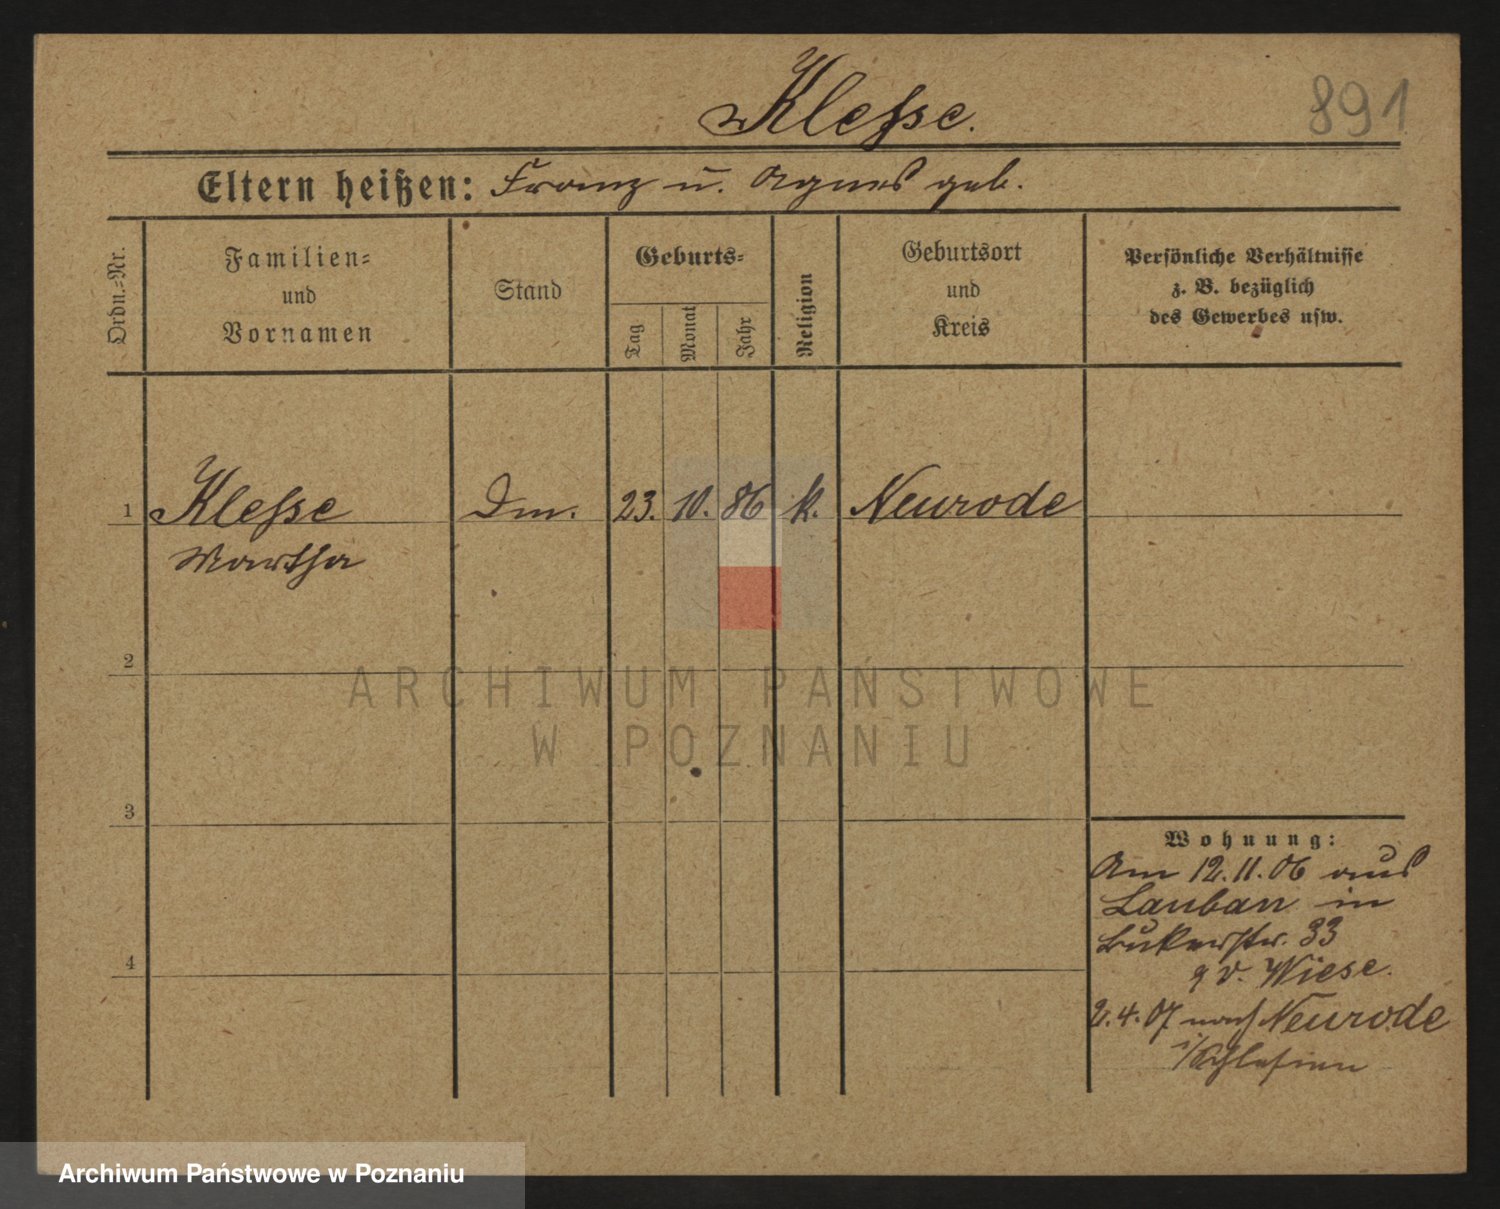 Klesse.
891
Eltern heißen: Franz u. Agnes geb.
Ordn.-Nr.
Familien-
und
Vornamen
Stand
Geburts-
Tag
Monat
Jahr
Religion
Geburtsort
und
Kreis
Persönliche Verhältnisse
z. B. bezüglich
des Gewerbes usw.
1 Klesse Dm. 23. 10. 86 k. Neurode
Martha
2
ARCHIWUM PAŃSTWOWE
W POZNANIU
3
Wohnung:
Am 12.11.06 aus
Lauban in
Bukerstr. 33
b. Wiese.
4
2.4.07 nach Neurode
i/Schlesien
Archiwum Państwowe w Poznaniu